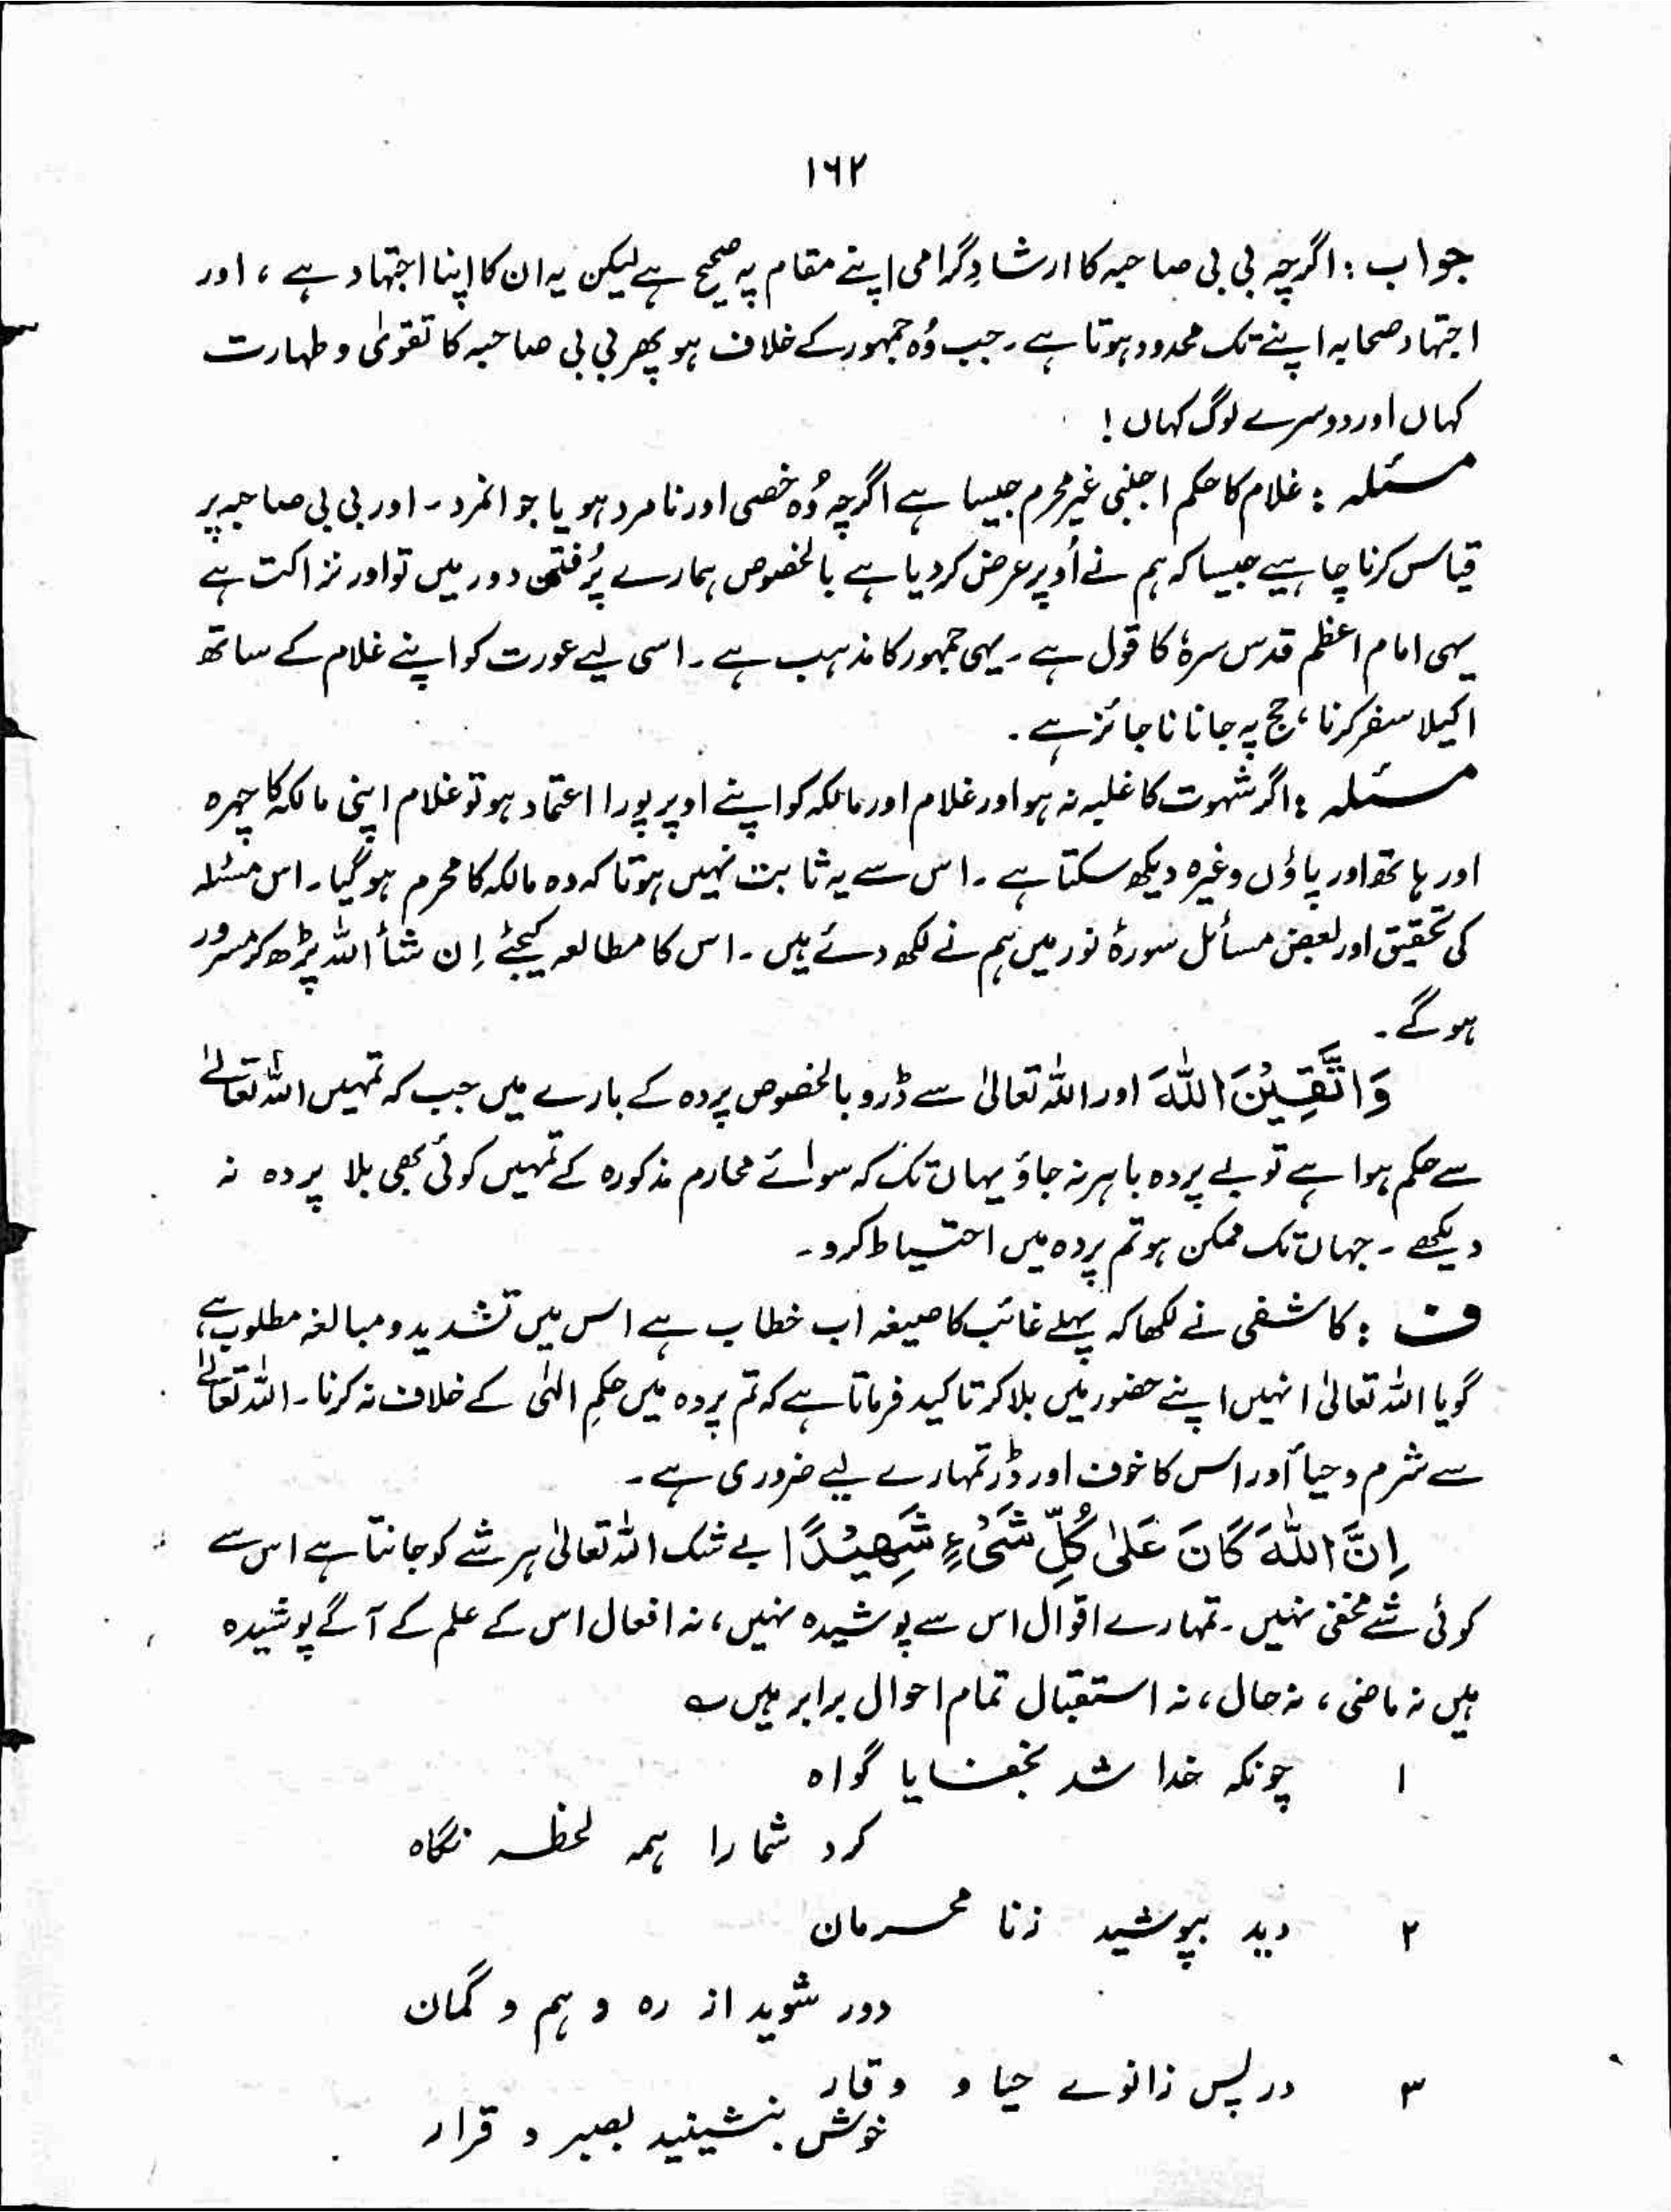 ۱۶۲
جواب : اگرچہ بی بی صاحبہ کا ارشادِ گرامی اپنے مقام پہ صحیح ہے لیکن یہ ان کا اپنا اجتہاد ہے ، اور
اجتہاد صحابہ اپنے تک محدود ہوتا ہے ۔ جب وُہ جمہور کے خلاف ہو پھر بی بی صاحبہ کا تقویٰ و طہارت
کہاں اور دوسرے لوگ کہاں !
مسئلہ : غلام کا حکم اجنبی غیر محرم جیسا ہے اگرچہ وُہ خصی اور نامرد ہو یا جوانمرد ۔ اور بی بی صاحبہ پر
قیاس کرنا چاہیے جیسا کہ ہم نے اُوپر عرض کر دیا ہے بالخصوص ہمارے پُر فتن دور میں تو اور نزاکت ہے
یہی امام اعظم قدس سرہٗ کا قول ہے ۔ یہی جمہور کا مذہب ہے ۔ اسی لیے عورت کو اپنے غلام کے ساتھ
اکیلا سفر کرنا ، حج پہ جانا ناجائز ہے ۔
مسئلہ : اگر شہوت کا غلبہ نہ ہو اور غلام اور مالکہ کو اپنے اوپر پورا اعتماد ہو تو غلام اپنی مالکہ کا چہرہ
اور ہاتھ اور پاؤں وغیرہ دیکھ سکتا ہے ۔ اس سے یہ ثابت نہیں ہوتا کہ وہ مالکہ کا محرم ہو گیا ۔ اس مسئلہ
کی تحقیق اور بعض مسائل سورۂ نور میں ہم نے لکھ دئے ہیں ۔ اس کا مطالعہ کیجئے اِن شأ اللہ پڑھ کر مسرور
ہو گے ۔
وَاتَّقِیْنَ اللّٰہَ اور اللہ تعالیٰ سے ڈرو بالخصوص پردہ کے بارے میں جب کہ تمہیں اللہ تعالےٰ
سے حکم ہوا ہے تو بے پردہ باہر نہ جاؤ یہاں تک کہ سوائے محارم مذکورہ کے تمہیں کوئی بھی بلا پردہ نہ
دیکھے ۔ جہاں تک ممکن ہو تم پردہ میں احتیاط کرو ۔
ف : کاشفی نے لکھا کہ پہلے غائب کا صیغہ اب خطاب ہے اس میں تشدید و مبالغہ مطلوب ہے ،
گویا اللہ تعالیٰ انہیں اپنے حضور میں بلا کر تاکید فرماتا ہے کہ تم پردہ میں حکمِ الٰہی کے خلاف نہ کرنا ۔ اللہ تعالےٰ
سے شرم و حیأ اور اس کا خوف اور ڈر تمہارے لیے ضروری ہے ۔
اِنَّ اللّٰہَ کَانَ عَلٰی کُلِّ شَیْءٍ شَہِیْدًا بے شک اللہ تعالیٰ ہر شے کو جانتا ہے اس سے
کوئی شے مخفی نہیں ۔ تمہارے اقوال اس سے پوشیدہ نہیں ، نہ افعال اس کے علم کے آگے پوشیدہ
ہیں نہ ماضی ، نہ حال ، نہ استقبال تمام احوال برابر ہیں ؎
۱ چونکہ خدا شد بخفایا گواہ
کرد شما را ہمہ لحظہ نگاہ
۲ دید بپوشید زنا محرمان
دور شوید از رہ وہم و گمان
۳ در پس زانوے حیا و وقار
خوش بنشینید بصبر و قرار